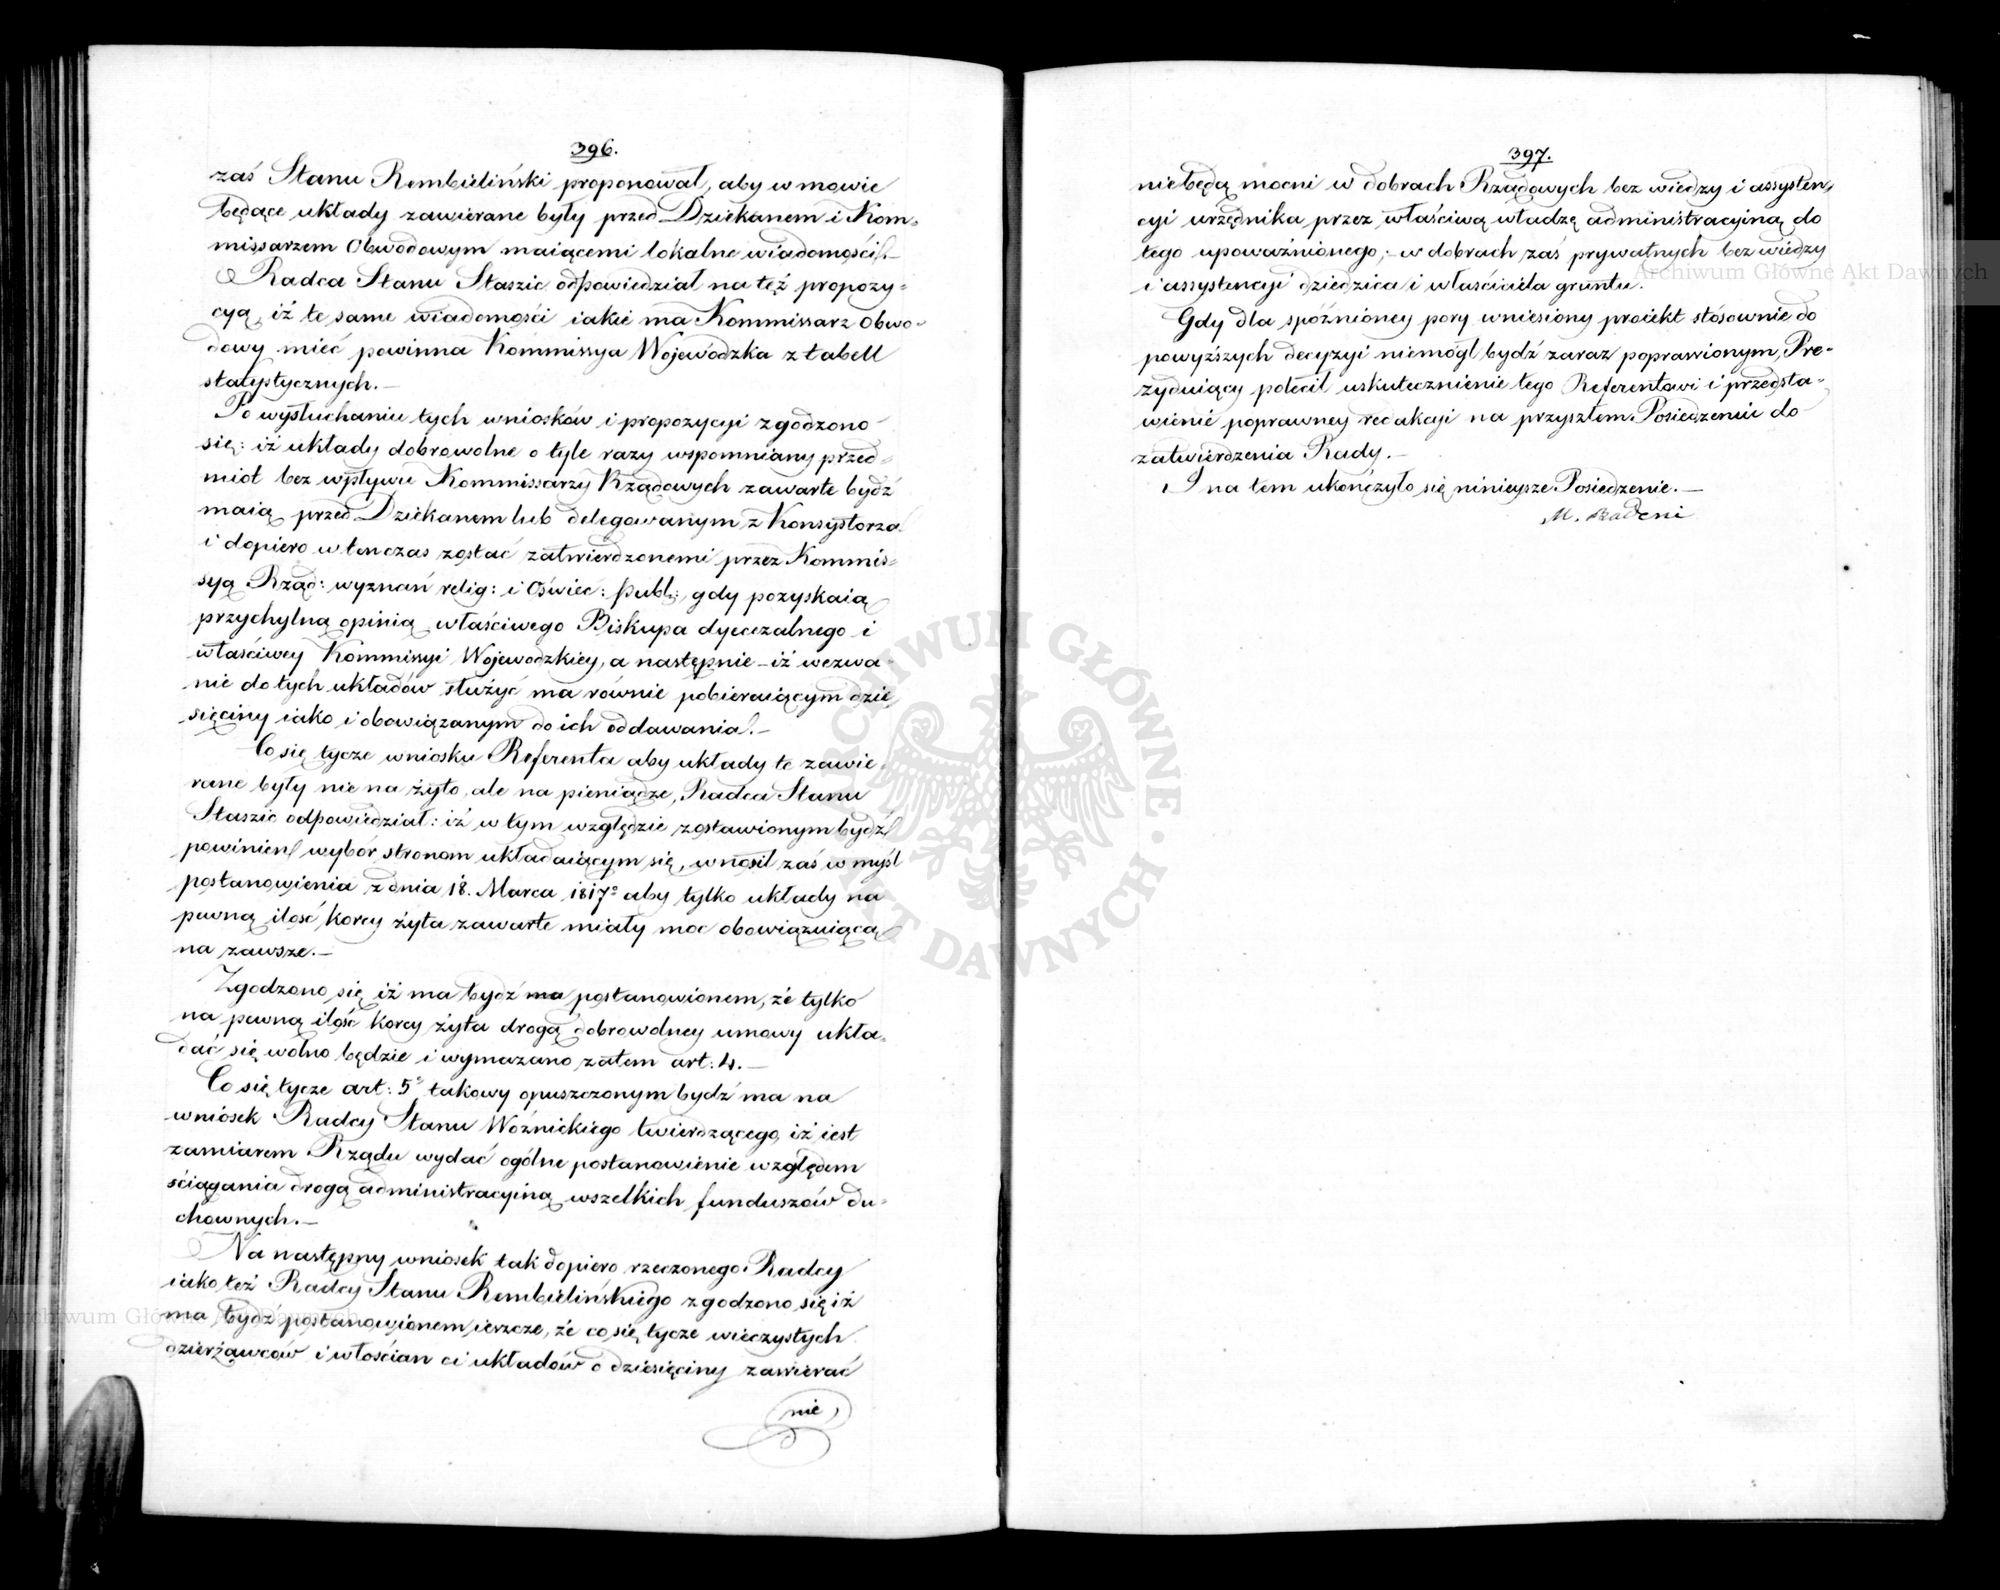 396.
zaś Stanu Rembieliński proponował, aby w mowie
będące układy zawierane były przed Dziekanem i Kom-
missarzem Obwodowym maiącemi lokalne wiadomości.—
Radca Stanu Staszic odpowiedział na tęż propozy-
cyą, iż te same wiadomości iakie ma Kommissarz Obwo-
dowy mieć powinna Kommissya Wojewódzka z tabell
statystycznych.—
Po wysłuchaniu tych wniosków i propozycyi zgodzono
się: iż układy dobrowolne o tyle razy wspomniany przed-
miot bez wpływu Kommissarzy Rządowych zawarte bydź
maią przed Dziekanem lub delegowanym z Konsystorza
i dopiero w tenczas zostać zatwierdzonemi przez Kommis-
syą Rząd: wyznań relig: i Oświec: publ:, gdy pozyskaią
przychylną opinią właściwego Biskupa dyecezalnego i
właściwey Kommissyi Wojewodzkiey, a następnie – iż wezwa-
nie do tych układów służyć ma równie pobieraiącym dzie
sięciny iako i obowiązanym do ich oddawania.—
Co się tycze wniosku Referenta aby układy te zawie-
rane były nie na żyto, ale na pieniądze, Radca Stanu
Staszic odpowiedział: iż w tym względzie zostawionym bydź
powinien wybór stronom układaiącym się, wnosił zaś w myśl
postanowienia z dnia 18. Marca 1817º aby tylko układy na
pewną ilość korcy żyta zawarte miały moc obowiązuiącą
na zawsze.—
Zgodzono się iż ma bydź ma postanowionem, że tylko
na pewną ilość korcy żyta drogą dobrowolney umowy ukła-
dać się wolno będzie i wymazano zatem art: 4.—
Co się tycze art: 5º takowy opuszczonym bydź ma na
wniosek Radcy Stanu Woźnickiego twierdzącego, iż iest
zamiarem Rządu wydać ogólne postanowienie względem
ściągania drogą administracyiną wszelkich funduszów du-
chownych.—
Na następny wniosek tak dopiero rzeczonego Radcy
iako też Radcy Stanu Rembielińskiego zgodzono się iż
ma bydź postanowionem ieszcze, że co się tycze wieczystych
dzierżawców i włościan ci układów o dziesięciny zawierać
nie
397.
niebędą mocni w dobrach Rządowych bez wiedzy i assysten-
cyi urzędnika przez właściwą władzę administracyiną do
tego upoważnionego;– w dobrach zaś prywatnych bez wiedzy
i assystencyi dziedzica i właściciela gruntu.
Gdy dla spóźnioney pory wniesiony proiekt stósownie do
powyższych decyzyi niemógł bydź zaraz poprawionym, Pre-
zyduiący polecił uskutecznienie tego Referentowi i przedsta-
wienie poprawney redakcyi na przyszłem Posiedzeniu do
zatwierdzenia Rady.—
I na tem ukończyło się ninieysze Posiedzenie.—
M. Badeni
Archiwum Główne Akt Dawnych
ARCHIWUM GŁÓWNE AKT DAWNYCH
Archiwum Główne Akt Dawnych